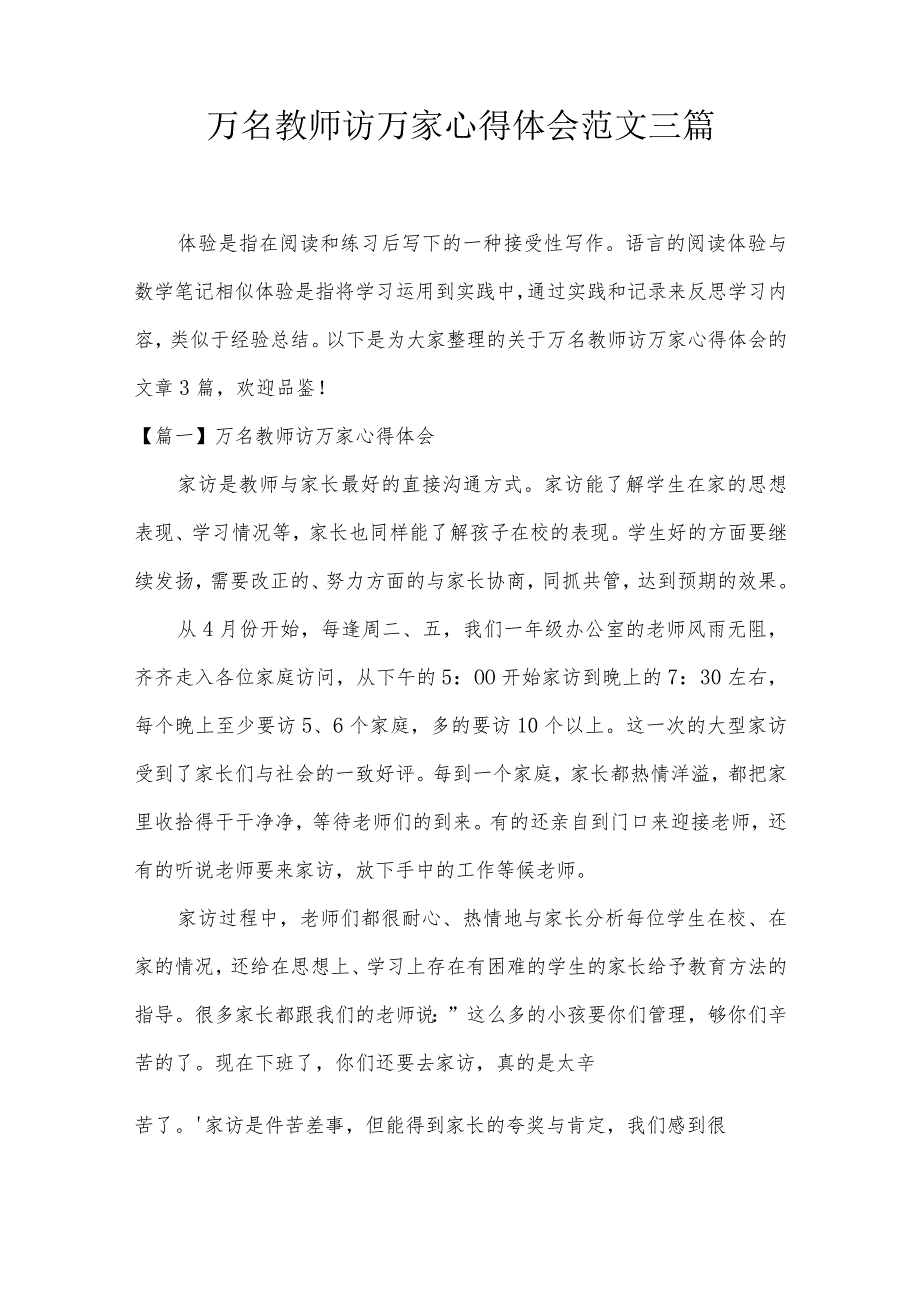 万名教师访万家心得体会范文三篇
体验是指在阅读和练习后写下的一种接受性写作。语言的阅读体验与
数学笔记相似体验是指将学习运用到实践中,通过实践和记录来反思学习内
容，类似于经验总结。以下是为大家整理的关于万名教师访万家心得体会的
文章3篇，欢迎品鉴！
【篇一】万名教师访万家心得体会
家访是教师与家长最好的直接沟通方式。家访能了解学生在家的思想
表现、学习情况等，家长也同样能了解孩子在校的表现。学生好的方面要继
续发扬，需要改正的、努力方面的与家长协商，同抓共管，达到预期的效果。
从4月份开始，每逢周二、五，我们一年级办公室的老师风雨无阻，
齐齐走入各位家庭访问，从下午的5：OO开始家访到晚上的7：30左右，
每个晚上至少要访5、6个家庭，多的要访10个以上。这一次的大型家访
受到了家长们与社会的一致好评。每到一个家庭，家长都热情洋溢，都把家
里收拾得干干净净，等待老师们的到来。有的还亲自到门口来迎接老师，还
有的听说老师要来家访，放下手中的工作等候老师。
家访过程中，老师们都很耐心、热情地与家长分析每位学生在校、在
家的情况，还给在思想上、学习上存在有困难的学生的家长给予教育方法的
指导。很多家长都跟我们的老师说：”这么多的小孩要你们管理，够你们辛
苦的了。现在下班了，你们还要去家访，真的是太辛
苦了。'家访是件苦差事，但能得到家长的夸奖与肯定，我们感到很